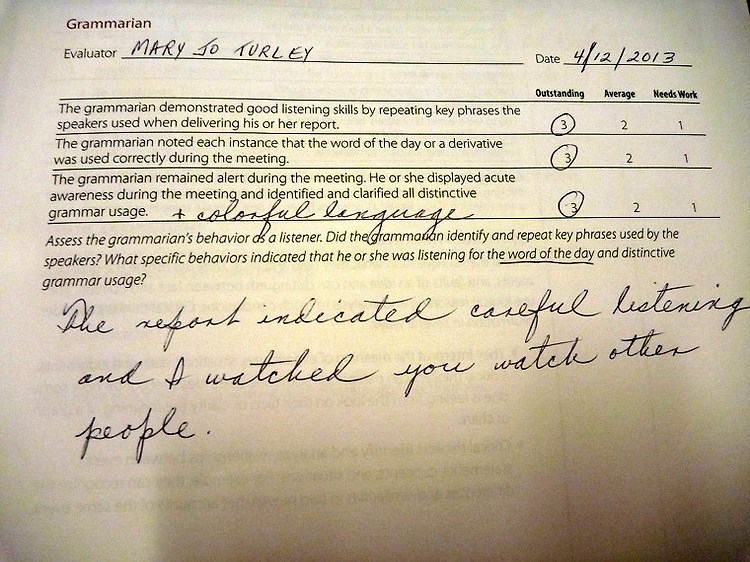 Grammarian
Evaluator MARY JO TURLEY Date 4/12/2013
Outstanding Average Needs Work
The grammarian demonstrated good listening skills by repeating key phrases the
speakers used when delivering his or her report. 3 2 1
The grammarian noted each instance that the word of the day or a derivative
was used correctly during the meeting. 3 2 1
The grammarian remained alert during the meeting. He or she displayed acute
awareness during the meeting and identified and clarified all distinctive
grammar usage. + colorful language 3 2 1
Assess the grammarian's behavior as a listener. Did the grammarian identify and repeat key phrases used by the
speakers? What specific behaviors indicated that he or she was listening for the word of the day and distinctive
grammar usage?
The report indicated careful listening
and I watched you watch other
people.